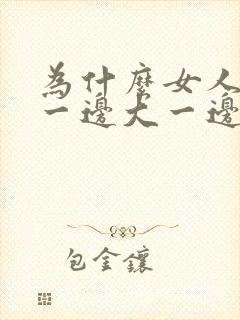 為什麼女人
一邊大一邊
包金鑲